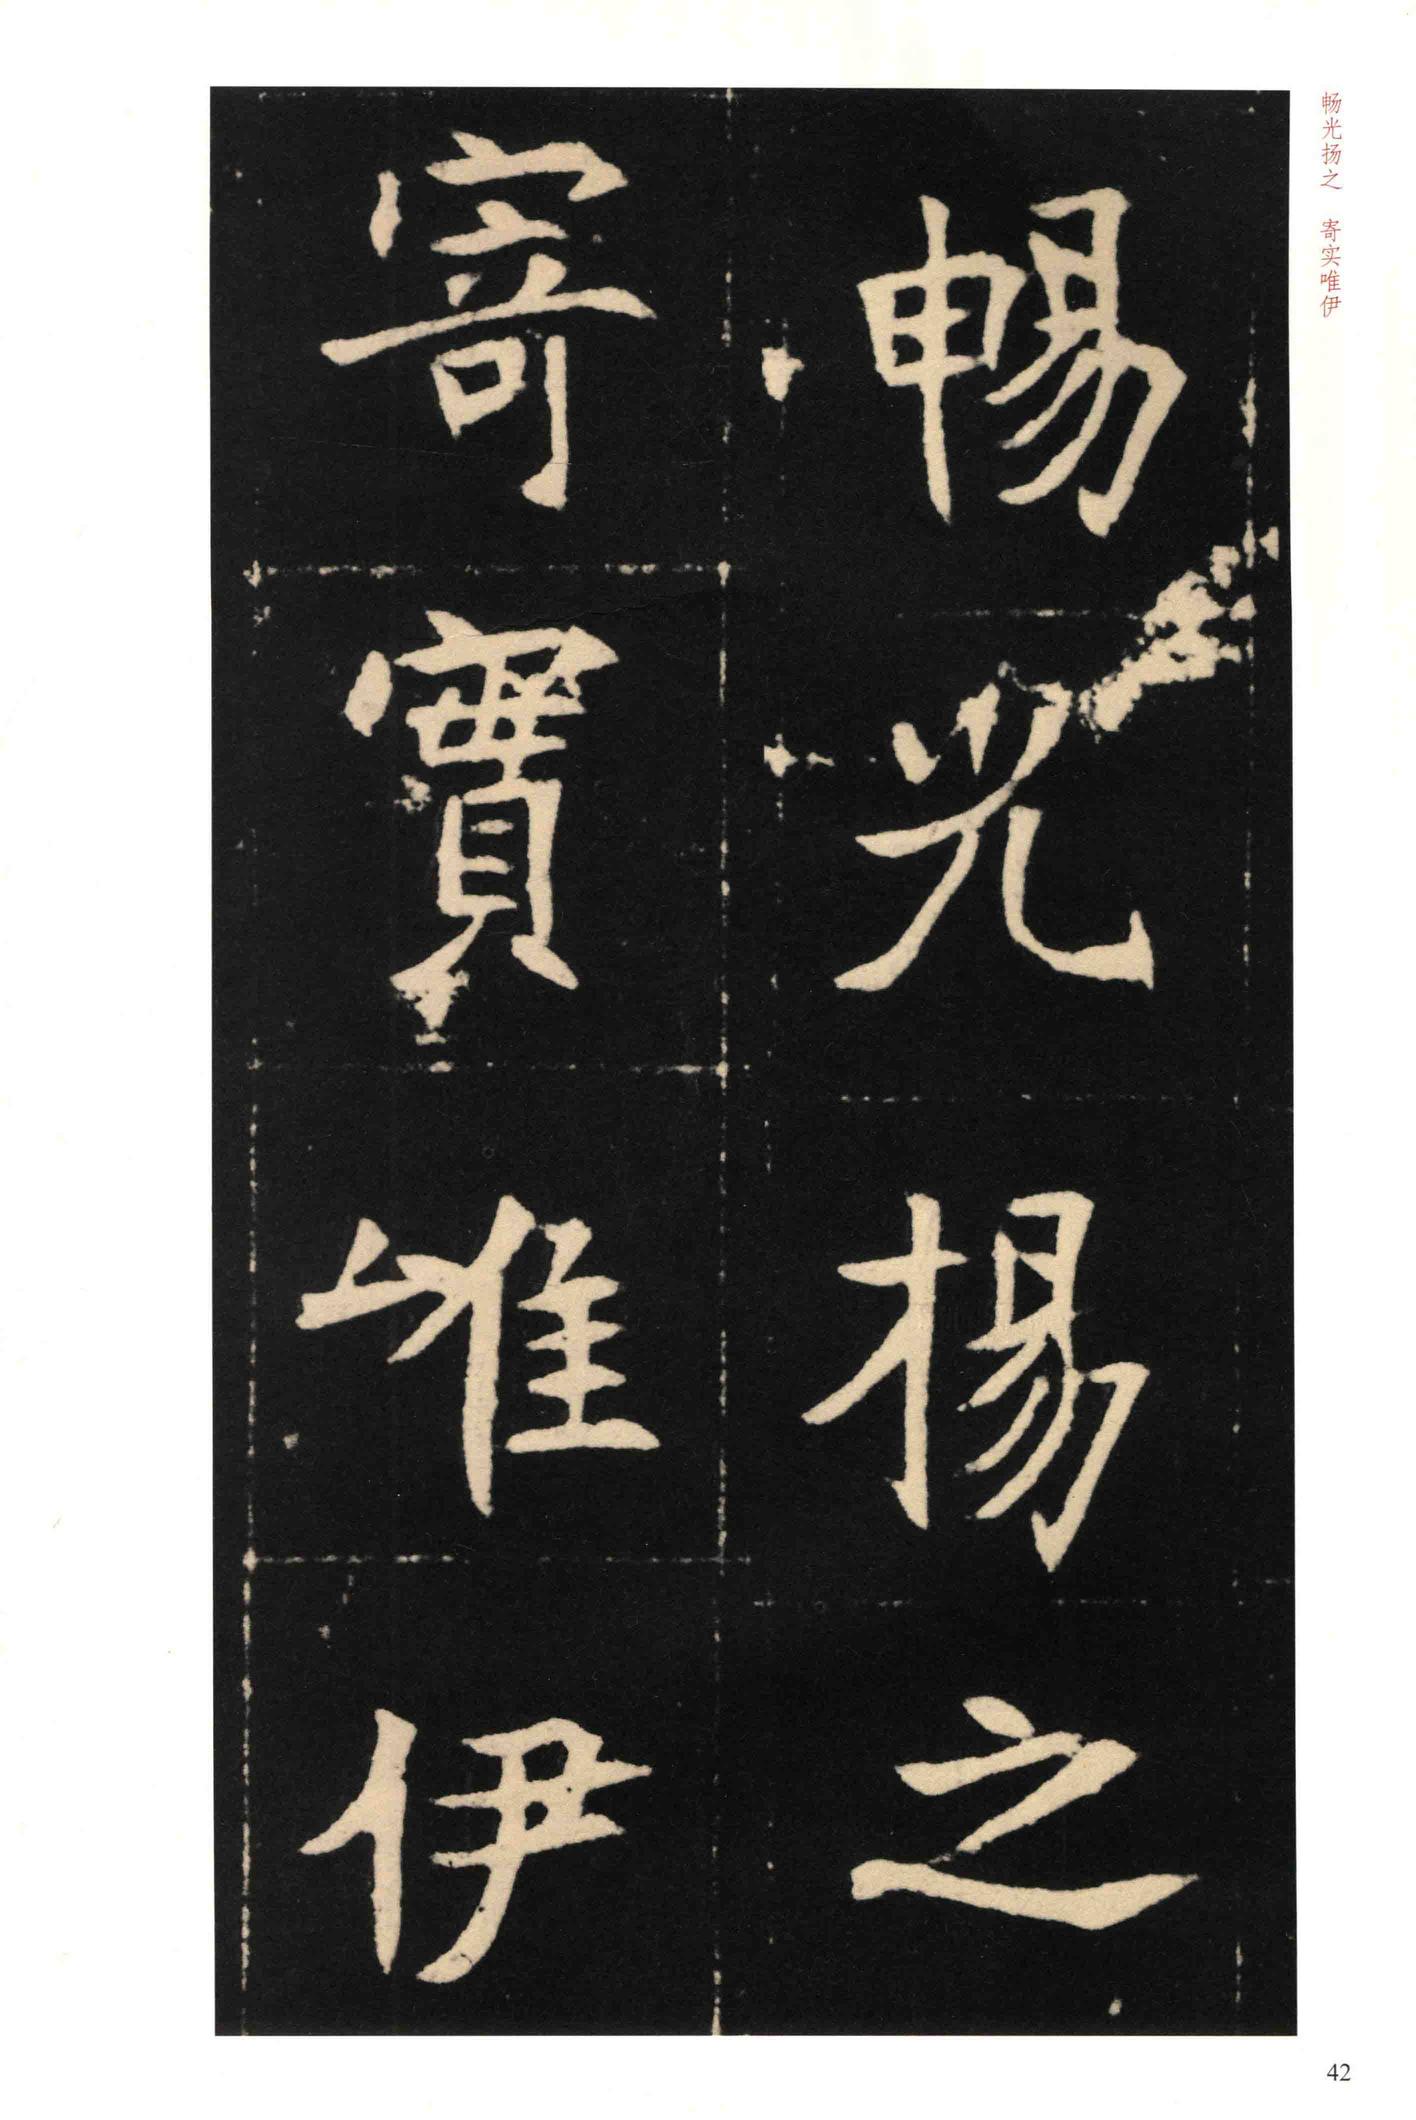 畅光扬之 寄实唯伊
暢光揚之
寄實唯伊
42